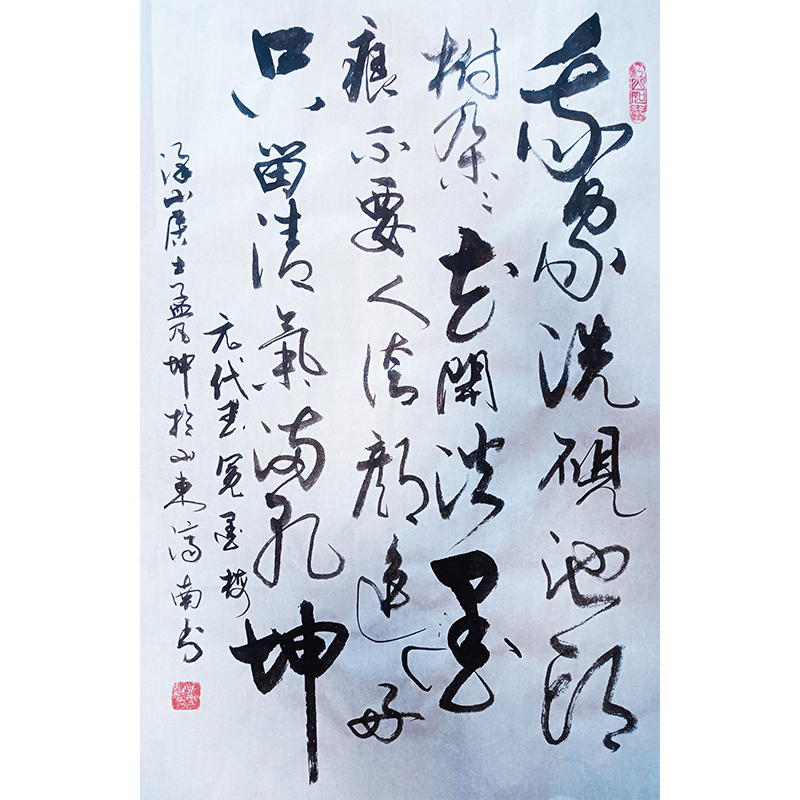 我家洗硯池頭
樹朵〻花開淡墨
痕不要人誇顏色好
只留清氣滿乾坤
元代王冕墨梅
山居士孟乃坤於山東濟南書